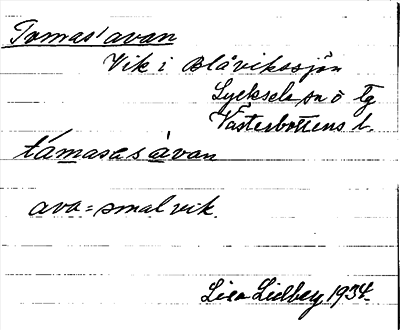 Tomas'avan
Vik i Blåvikssjön
Lycksele sn o Tg
Västerbottens l.
támases ávan
ava = smal vik.
Lisa Lidberg 1934.